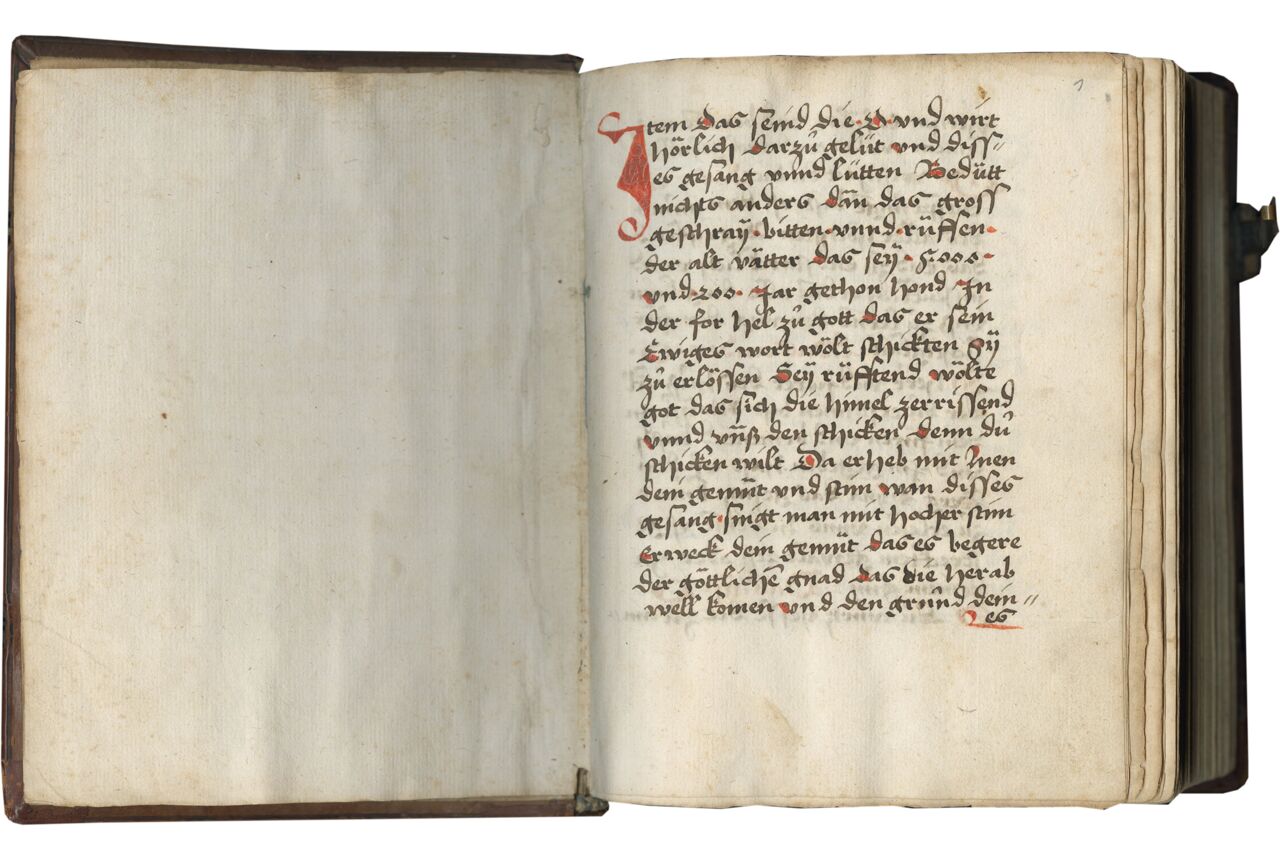 1
Item das seind die · O · vnd wirt
hörlich darzů gelüt vnd diss-
es gesang vnnd lütten Bedütt
nichts anders dan das gross
geschraÿ · bitten · vnnd · rüffen ·
der alt vätter das seÿ · 5000 ·
vnd · 200 · Jar gethon hond In
der for hel zů gott das er sein
Ewiges wort wölt schickten Sÿ
zů erlössen Seÿ rüfftend wölte
got das sich die himel zerrissend
vnnd vnß den schicken denn dů
schicken wilt Da erheb mit Inen
dein gemüt vnd stim wan disses
gesang · singt man mit hocher stim
Erweck dein gemüt das es begere
der göttlichē gnad das die herab
well komen vnd den grund dein=
es